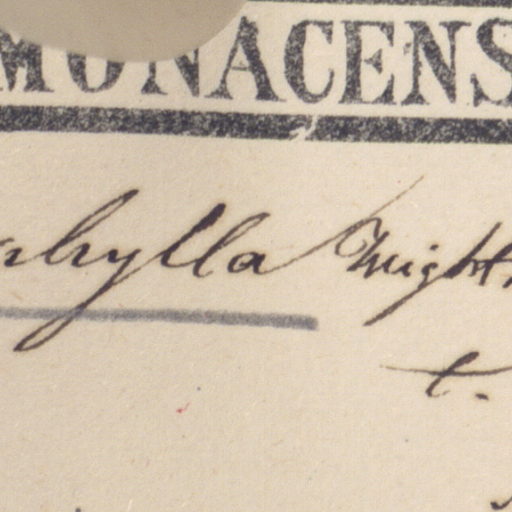 MONACENS
phylla Wight
t.